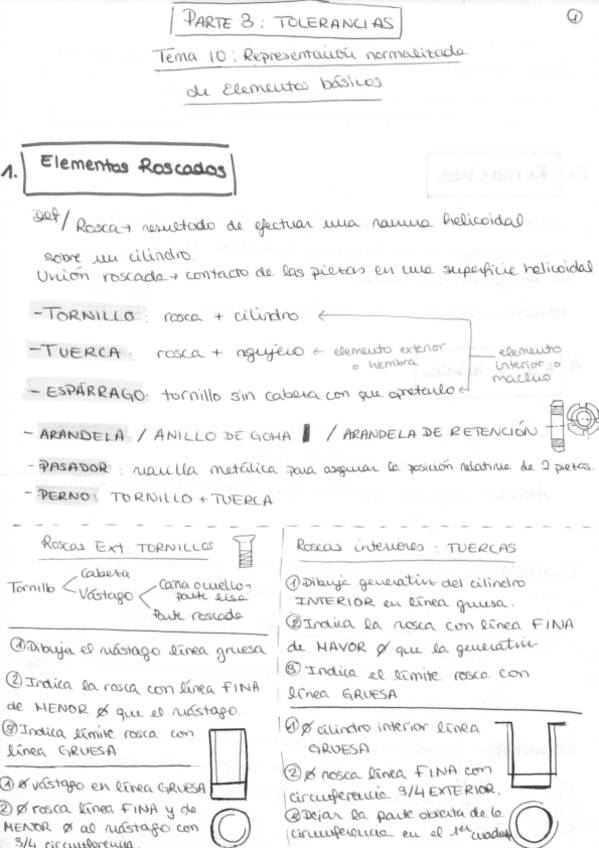 PARTE 3: TOLERANCIAS
1
Tema 10: Representación normalizada
de Elementos básicos
1. Elementos Roscados
Def/ Rosca → resultado de efectuar una ranura helicoidal
sobre un cilindro.
Unión roscada → contacto de las piezas en una superficie helicoidal
- TORNILLO: rosca + cilindro ←
- TUERCA: rosca + agujero ← elemento exterior o hembra
elemento interior o macho
- ESPÁRRAGO: tornillo sin cabeza con que apretarlo ←
- ARANDELA / ANILLO DE GOMA / ARANDELA DE RETENCIÓN
- PASADOR: varilla metálica para asegurar la posición relativa de 2 piezas.
- PERNO: TORNILLO + TUERCA
Roscas Ext: TORNILLOS
Tornillo
Cabeza
Vástago
Caña o cuello → parte lisa
Parte roscada
① Dibuja el vástago línea gruesa
② Indica la rosca con línea FINA
de MENOR Ø que el vástago.
③ Indica límite rosca con
línea GRUESA
① Ø vástago en línea GRUESA
② Ø rosca línea FINA y de
MENOR Ø al vástago con
3/4 circunferencia.
Roscas interiores: TUERCAS
① Dibuja generatriz del cilindro
INTERIOR en línea gruesa.
② Indica la rosca con línea FINA
de MAYOR Ø que la generatriz
③ Indica el límite rosca con
línea GRUESA
① Ø cilindro interior línea
GRUESA
② Ø rosca línea FINA con
circunferencia 3/4 EXTERIOR.
③ Dejar la parte abierta de la
circunferencia en el 1er cuadr